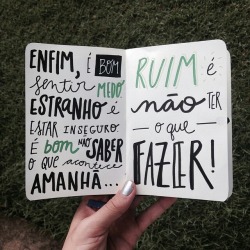 ENFIM, É BOM
sentir MEDO
ESTRANHO É
ESTAR INSEGURO
É bom NÃO SABER
O QUE acontece
AMANHÃ...
RUIM é
não TER
o que
FAZER!